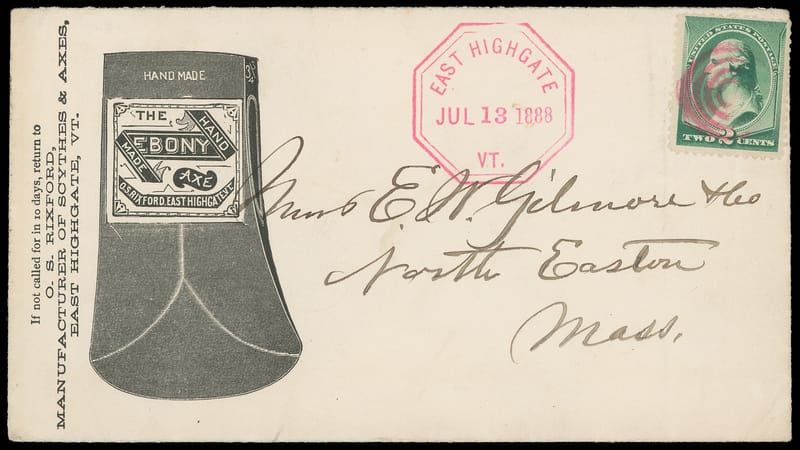 If not called for in 10 days, return to
O. S. RIXFORD,
MANUFACTURER OF SCYTHES & AXES,
EAST HIGHGATE, VT.
HAND MADE
THE
HAND
EBONY
MADE
AXE
O.S. RIXFORD. EAST HIGHGATE, VT.
EAST HIGHGATE
JUL 13 1888
VT.
UNITED STATES POSTAGE
TWO 2 CENTS
E. W. Gilmore & Co
North Easton
Mass.